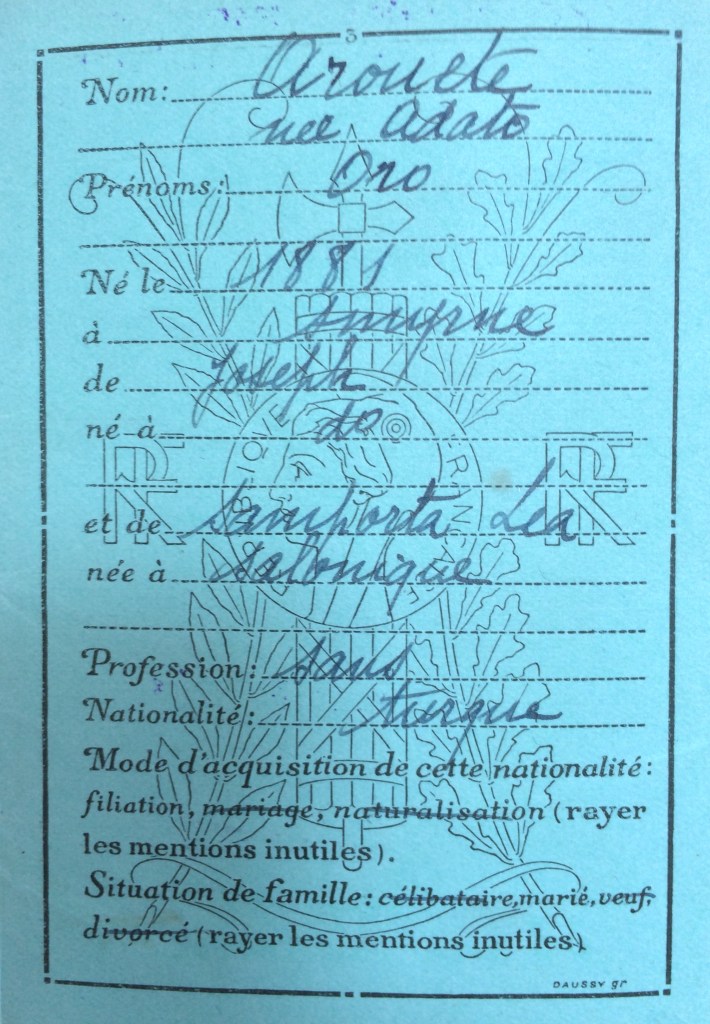 3
Nom: Arouete
née Adato
Prénoms: Oro
Né le 1881
à Smyrne
de Joseph
né à do
et de Samporta Lea
née à Salonique
Profession: sans
Nationalité: turque
Mode d'acquisition de cette nationalité:
filiation, mariage, naturalisation (rayer
les mentions inutiles).
Situation de famille: célibataire, marié, veuf,
divorcé (rayer les mentions inutiles)
RF
RF
DAUSSY gr